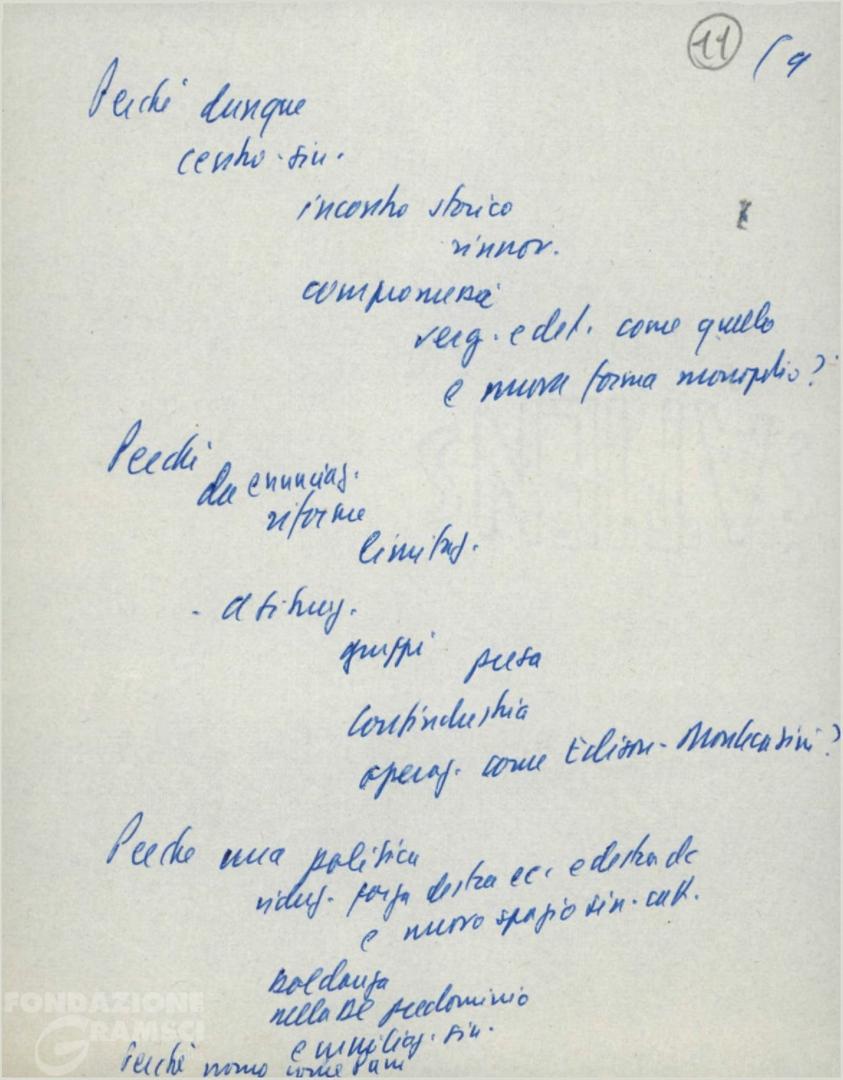 11 (9
Perché dunque
centro-sin.
incontro storico
rinnov.
compromessi
verg. e det. come quello
e nuova forma monopolio?
Perché
da enunciaz.
riforme
limitaz.
- attuaz.
gruppi presa
Confindustria
operaz. come Edison-Montecatini?
Perché una politica
riduz. forza destra ec. e destra dc
e nuovo spazio sin. catt.
baldanza
nella DC predominio
e umiliaz. sin.
Perché uomo come
FONDAZIONE
GRAMSCI